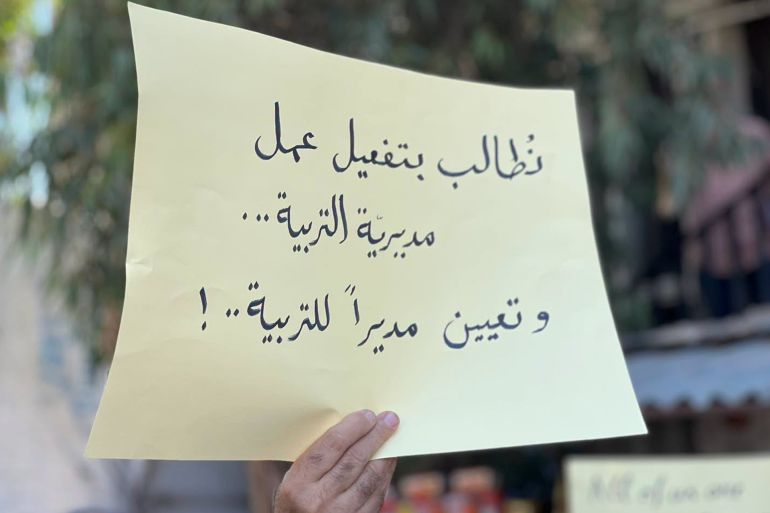 نُطالب بتفعيل عمل
مديريّة التربية...
و تعيين مديراً للتربية.. !
All of us are